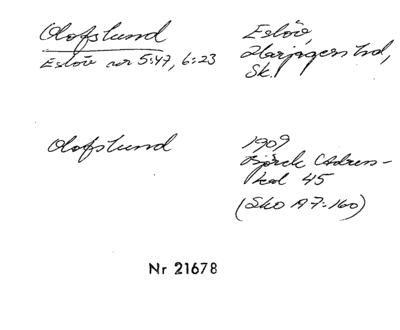 Olofslund
Eslöv nr 5:47, 6:23
Eslöv,
Harjagers hd,
Sk.
Olofslund
1909
Björck Adress-
kal 45
(Sko A 7:160)
Nr 21678